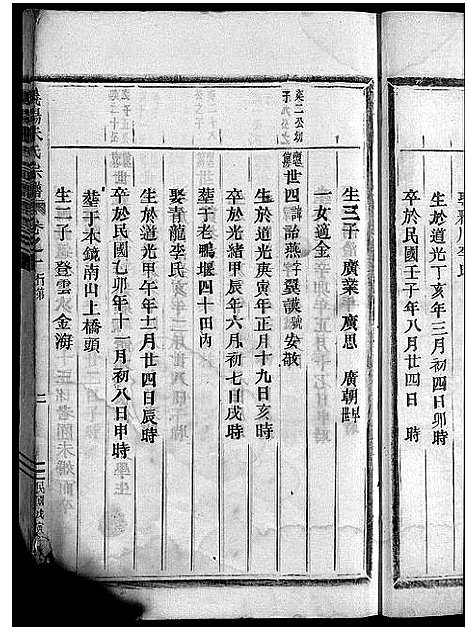 生於道光丁亥年三月初四日卯時
卒於民國壬子年八月廿四日 時
生三子 廣業 廣思 廣朝
一女適全
世四 諱詒燕字翼謨號安敬
生於道光庚寅年正月十九日亥時
卒於光緒甲辰年六月初七日戌時
塟于老鴨堰四十田內
娶青龍李氏
生於道光甲午年十二月廿四日辰時
卒於民國乙卯年十一月初八日申時
塟于木鏡南山上橋頭
生二子 登雲 金海
朱氏宗譜 卷之 行第 二